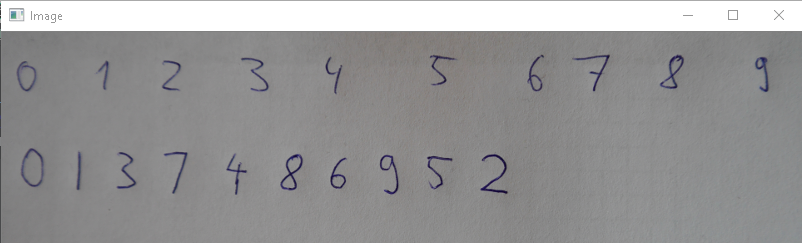 Image
0 1 2 3 4 5 6 7 8 9
0 1 3 7 4 8 6 9 5 2